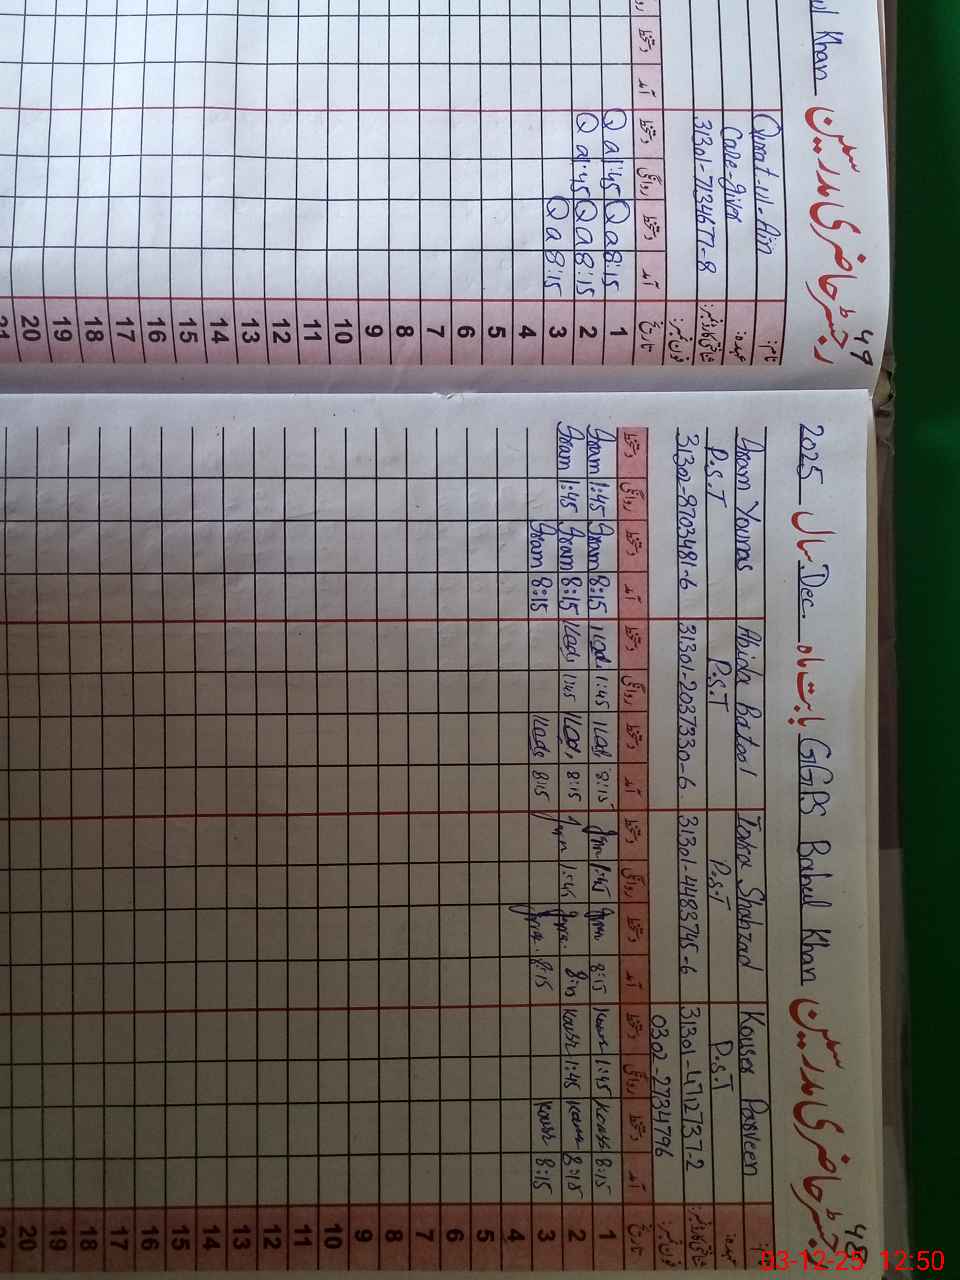 ul Khan رجسٹر حاضری مدرسین 49
نام: Qurat-ul-Ain
عہدہ: Care-giver
شناختی کارڈ نمبر: 31301-7134677-8
فون نمبر:
تاریخ آمد دستخط روانگی دستخط آمد دستخط
1 8:15 Qa 1:45 Qa
2 8:15 Qa 1:45 Qa
3 8:15 Qa
4
5
6
7
8
9
10
11
12
13
14
15
16
17
18
19
20
21
رجسٹر حاضری مدرسین GGPS Bahul Khan بابت ماہ Dec سال 2025 48
نام: Kouser Parveen Iqra Shahzad Abida Batool Iram Younas
عہدہ: P.S.T P.S.T P.S.T P.S.T
شناختی کارڈ نمبر: 31301-4712737-2 31301-4483745-6 31301-2037330-6 31302-8703481-6
فون نمبر: 0302-2734796
تاریخ آمد دستخط روانگی دستخط آمد دستخط روانگی دستخط آمد دستخط روانگی دستخط آمد دستخط روانگی دستخط
1 8:15 1:45 8:15 1:45 8:15 1:45 8:15 Iram 1:45 Iram
2 8:15 1:45 1:45 8:15 1:45 8:15 Iram 1:45 Iram
3 8:15 8:15 8:15 8:15 Iram
4
5
6
7
8
9
10
11
12
13
14
15
16
17
18
19
20
21
03-12-25 12:50